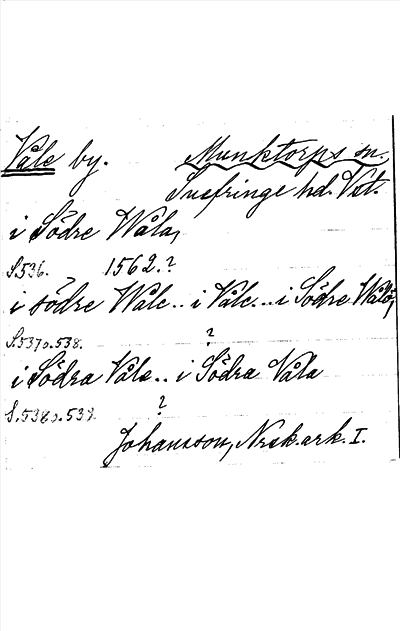 Våle by. Munktorps sn.
Snefringe hd. Vst.
i Södre Wåla,
S.536. 1562.?
i södre Wåle.. i Våle... i Södre Wålö,
S.537 o. 538. ?
i Södra Våle.. i Södra Våla
S.538 o. 539. ?
Johansson, Nrsk.ark. I.